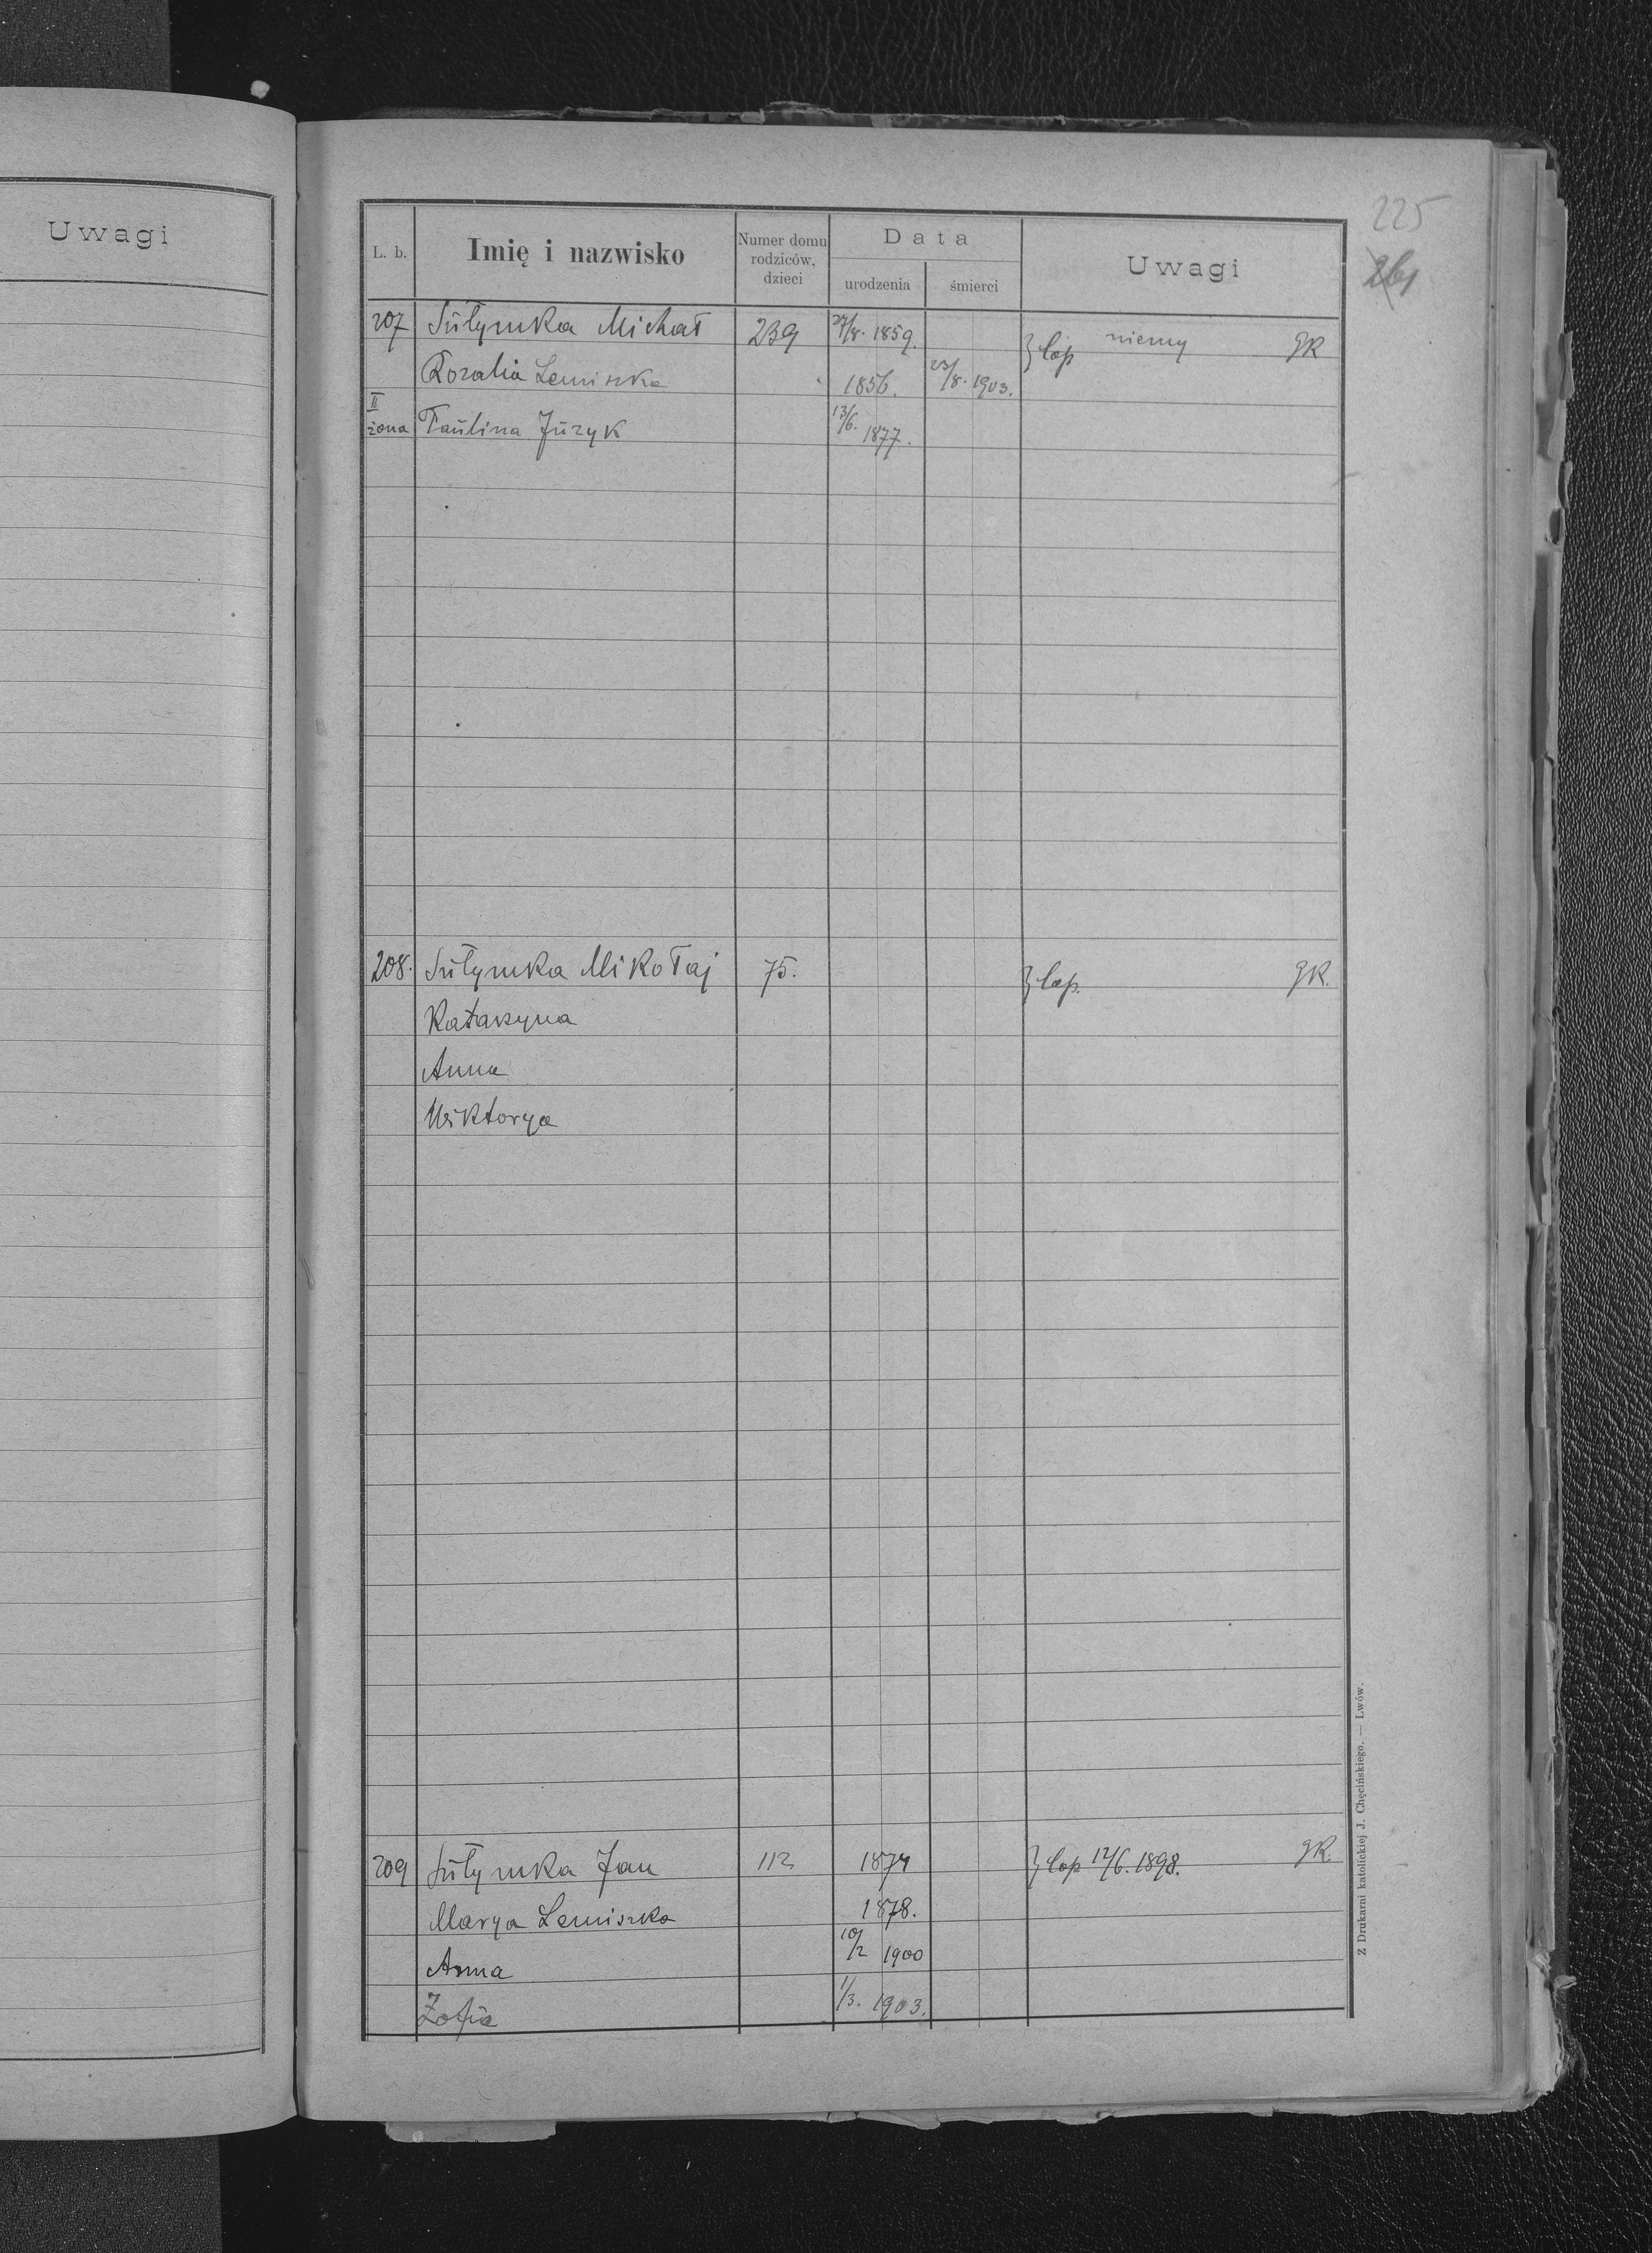 Uwagi
225
261
L. b.
Imię i nazwisko
Numer domu rodziców, dzieci
Data
urodzenia
śmierci
Uwagi
207 Sułymka Michał 239 27/8. 1859. } cop niemy gR
Rozalia Lemiszka 1856. 23/8. 1903.
II żona Paulina Jüzyk 13/6. 1877.
208. Sułymka Mikołaj 75. } cop. gR.
Katarzyna
Anna
Wiktorya
209 Sułymka Jan 112 1874 } cop 12/6. 1898. gR.
Marya Lemiszka 1878.
Anna 10/2 1900
Zofia 1/3. 1903.
Z Drukarni katolickiej J. Chęcińskiego. — Lwów.